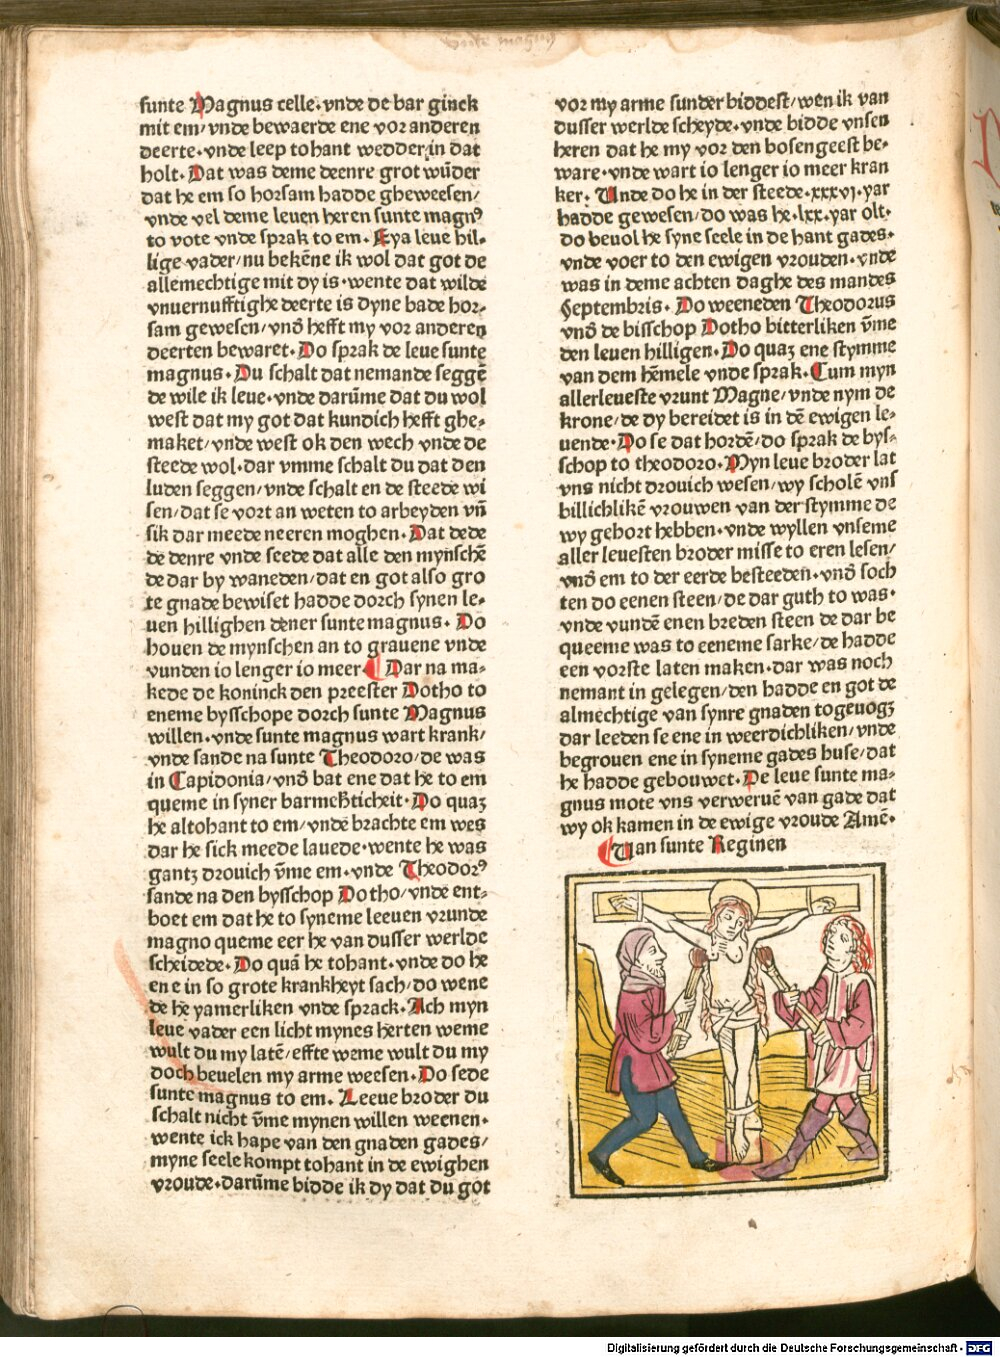 sunte Magnus celle·vnde de bar ginck
mit em/vnde bewaerde ene vor anderen
deerte·vnde leep tohant wedder in dat
holt·Dat was deme deenre grot wūder
dat he em so horsam hadde gheweesen/
vnde vel deme leuen heren sunte magnꝰ
to vote vnde sprak to em·Eya leue hil⸗
lige vader/nu bekēne ik wol dat got de
allemechtige mit dy is·wente dat wilde
vnuernufftighe deerte is dyne bade hor⸗
sam gewesen/vnd̄ hefft my vor anderen
deerten bewaret·Do sprak de leue sunte
magnus·Du schalt dat nemande seggē
de wile ik leue·vnde darūme dat du wol
west dat my got dat kundich hefft ghe⸗
maket/vnde west ok den wech vnde de
steede wol·dar vmme schalt du dat den
luden seggen/vnde schalt en de steede wi
sen/dat se vort an weten to arbeyden vn̄
sik dar meede neeren moghen·Dat dede
de denre vnde seede dat alle den mynschē
de dar by waneden/dat en got also gro
te gnade bewiset hadde dorch synen le⸗
uen hillighen dener sunte magnus·Do
houen de mynschen an to grauene vnde
vunden io lenger io meer·¶Dar na ma⸗
kede de koninck den preester Dotho to
eneme bysschope dorch sunte Magnus
willen·vnde sunte magnus wart krank/
vnde sande na sunte Theodoro/de was
in Capidonia/vnd̄ bat ene dat he to em
queme in syner barmeßticheit·Do quaꝫ
he altohant to em/vnde brachte em wes
dar he sick meede lauede·wente he was
gantz drouich v̄me em·vnde Theodorꝰ
sande na den bysschop Dotho/vnde ent⸗
boet em dat he to syneme leeuen vrunde
magno queme eer he van dusser werlde
scheidede·Do quā he tohant·vnde do he
ene in so grote krankheyt sach/do wene
de he yamerliken vnde sprack·Ach myn
leue vader een licht mynes herten weme
wult du my latē/effte weme wult du my
doch beuelen my arme weesen·Do sede
sunte magnus to em·Leeue broder du
schalt nicht v̄me mynen willen weenen·
wente ick hape van den gnaden gades/
myne seele kompt tohant in de ewighen
vroude·darūme bidde ik dy dat du got
vor my arme sunder biddest/wen ik van
dusser werlde scheyde·vnde bidde vnsen
heren dat he my vor den bosen geest be⸗
ware·vnde wart io lenger io meer kran
ker·Vnde do he in der steede·xxxvj·yar
hadde gewesen/do was he·lxx·yar olt·
do beuol he syne seele in de hant gades·
vnde voer to den ewigen vrouden·vnde
was in deme achten daghe des mandes
Septembris·Do weeneden Theodorus
vnd̄ de bisschop Dotho bitterliken v̄me
den leuen hilligen·Do quaꝫ ene stymme
van dem hēmele vnde sprak·Cum myn
allerleueste vrunt Magne/vnde nym de
krone/de dy bereidet is in dē ewigen le⸗
uende·Do se dat hordē/do sprak de bys⸗
schop to theodoro·Myn leue broder lat
vns nicht drouich wesen/wy scholē vns
billichlikē vrouwen van der stymme de
wy gehort hebben·vnde wyllen vnseme
aller leuesten broder misse to eren lesen/
vnd̄ em to der eerde besteeden·vnd̄ soch
ten do eenen steen/de dar guth to was·
vnde vundē enen breden steen de dar be
queeme was to eeneme sarke/de hadde
een vorste laten maken·dar was noch
nemant in gelegen/den hadde en got de
almechtige van synre gnaden togeuogꝫ
dar leeden se ene in weerdichliken/vnde
begrouen ene in syneme gades huse/dat
he hadde gebouwet·De leue sunte ma⸗
gnus mote vns verweruē van gade dat
wy ok kamen in de ewige vroude Amē·
¶Uan sunte Reginen
Digitalisierung gefördert durch die Deutsche Forschungsgemeinschaft - DFG